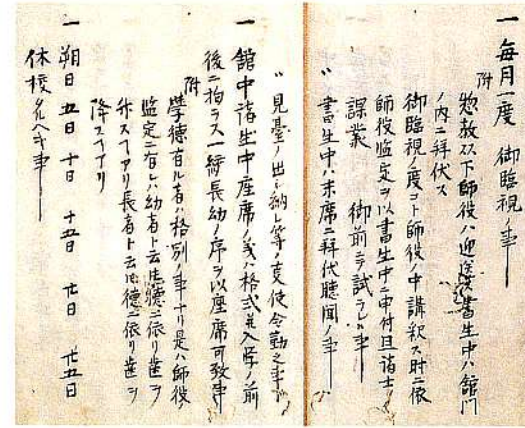 一 毎月一度 御臨視ノ事
附 惣教以下師役ハ迎送書生中ハ館門
ノ内ニ拝伏ス
御臨視ノ度コト師役ノ中講釈ス時ニ依
師役監定ヲ以書生中ニ申付且諸士
課業 御前ニテ試ラレシ事
〃 書生中ハ末席ニ拝伏聴聞ノ事
〃 見臺ノ出シ納レ等ノ支使令勤之事
一 館中諸生中座席ノ義ハ格式並入学ノ前
後ニ拘ラス一統長幼ノ序ヲ以座席可致事
附 學徳有ル者ハ格別ノ事ナリ是ハ師役ノ
監定ニ有レハ幼者ト云共徳ニ依リ歯ヲ
升スコアリ長者ト云共徳ニ依リ歯ヲ
降スコアリ
一 朔日 五日 十日 十五日 廿日 廿五日
休校タルヘキ事